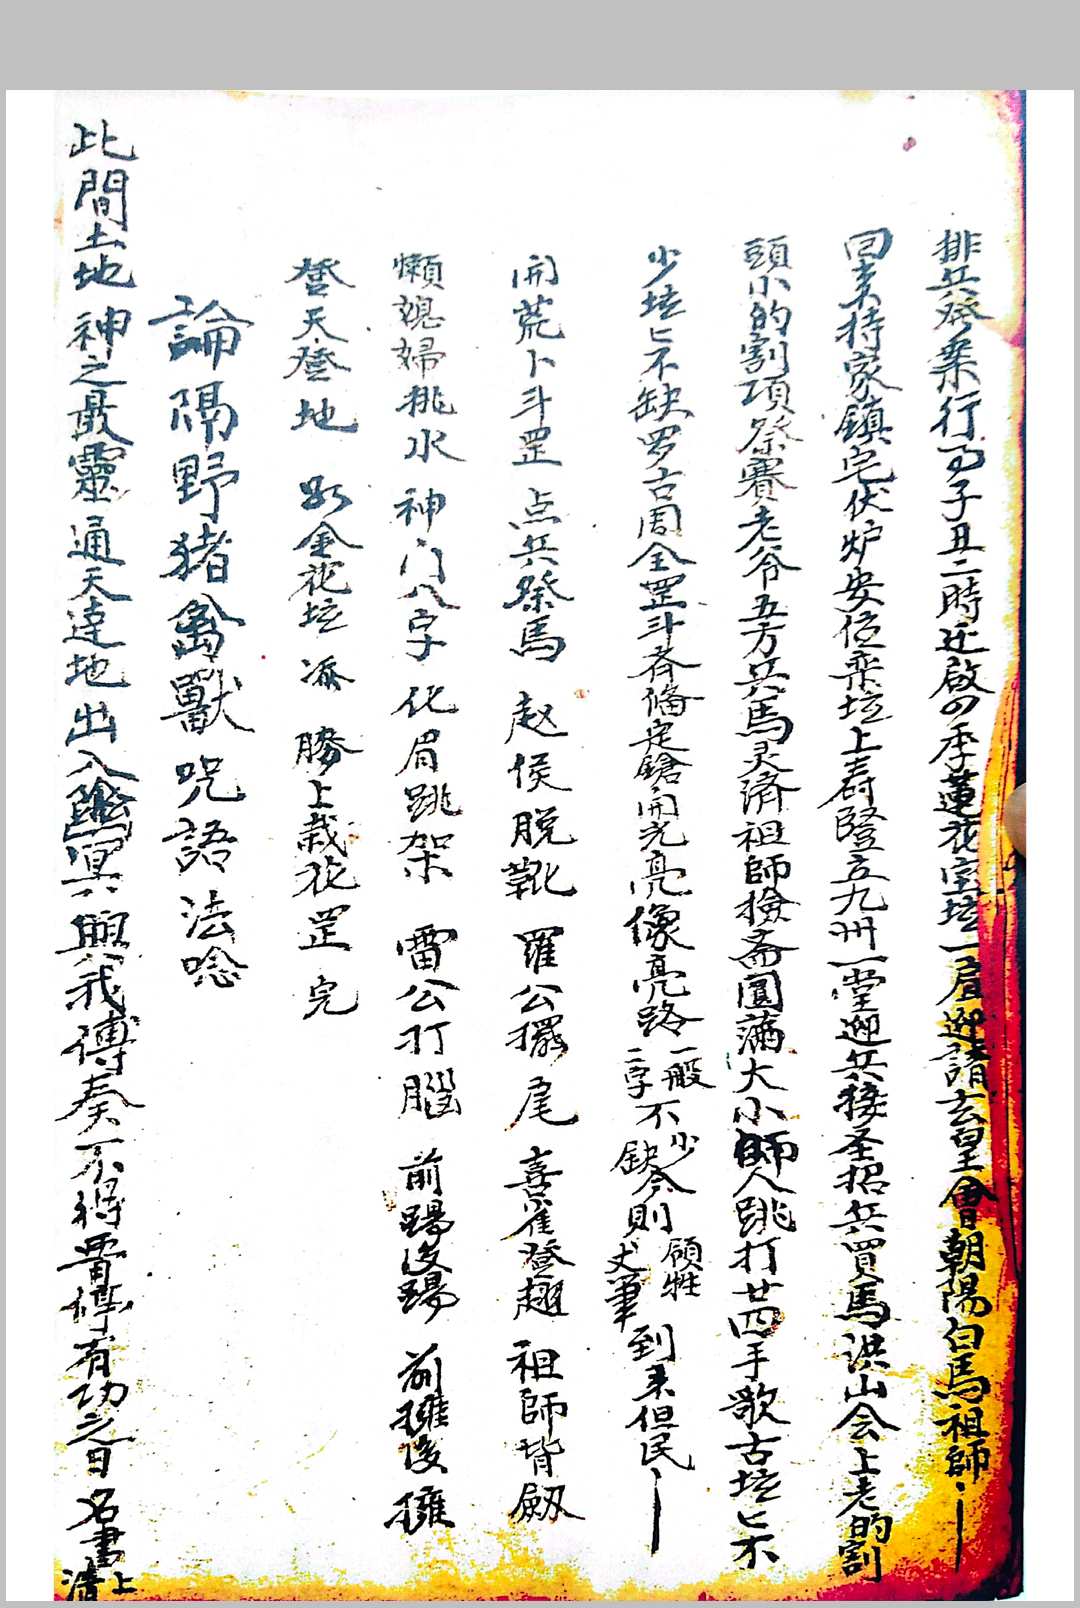 排兵發乘行 子丑二時 啟四季蓮花室坛一 迎請玄皇會朝陽白馬祖師
回來持家鎮宅伏炉安位 坛上 豎立九州一堂迎兵接圣招兵買馬洪山会上老的割
頭小的割項祭賽老爷五方兵馬灵济祖師撿斋圓滿大小師人跳打廿四手歌古坛上不
少坛上不缺罗古周全罡斗斉俻定鎗開光亮像亮路一般二字不少缺今則 到来但民
開荒卜斗罡 点兵祭馬 赵侯脱靴 羅公擺尾 喜雀登 祖師背劔
懶媳婦挑水 神门八字 化眉跳架 雷公打腦 前踢後踢 前擁後擁
登天登地 金花坛 勝上栽花罡 完
論隔野猪禽獸咒語法唸
此間土地 神之最靈 通天達地 出入幽冥 與我傳奏 不得 停 有功之日 名書上清